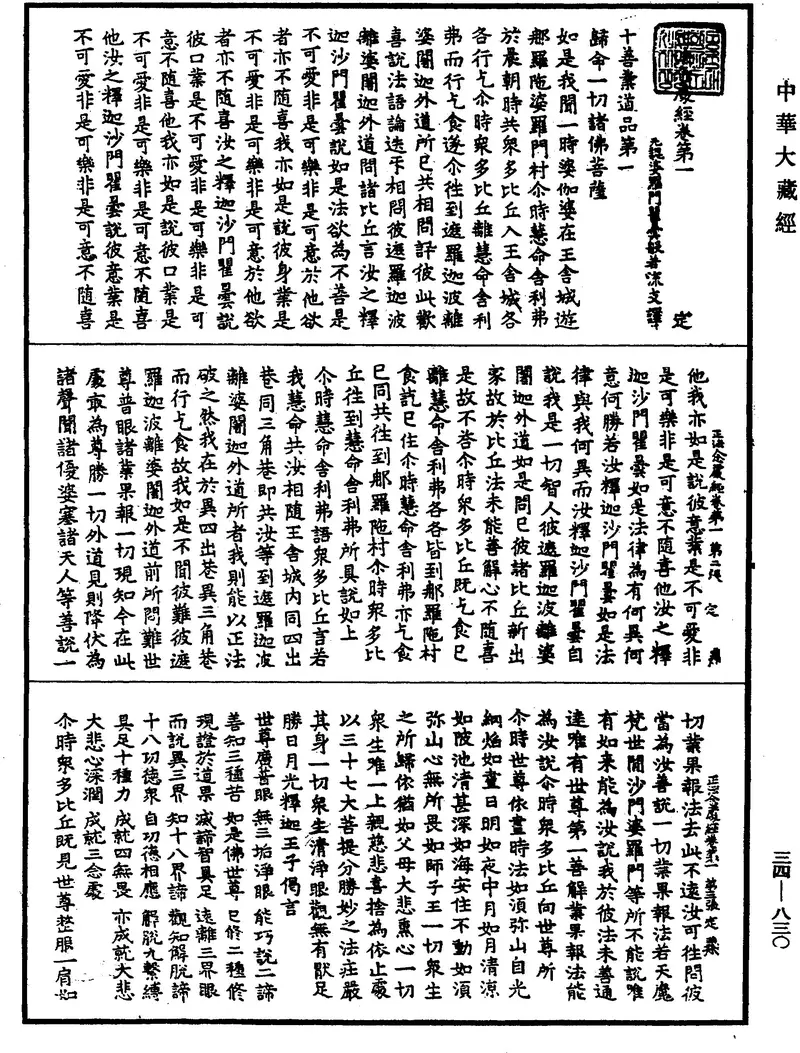 中華大藏經
三四—八三〇
經卷第一
定
元魏婆羅門瞿曇般若流支譯
十善業道品第一
歸命一切諸佛菩薩
如是我聞一時婆伽婆在王舍城遊
那羅陁婆羅門村尒時慧命舍利弗
於晨朝時共衆多比丘入王舍城各
各行乞尒時衆多比丘離慧命舍利
弗而行乞食遂尒徃到遮羅迦波離
婆闍迦外道所已共相問評彼此歡
喜說法語論迭乎相問彼遮羅迦波
離婆闍迦外道問諸比丘言汝之釋
迦沙門瞿曇說如是法欲為不善是
不可愛非是可樂非是可意於他欲
者亦不隨喜我亦如是說彼身業是
不可愛非是可樂非是可意於他欲
者亦不隨喜汝之釋迦沙門瞿曇說
彼口業是不可愛非是可樂非是可
意不隨喜他我亦如是說彼口業是
不可愛非是可樂非是可意不隨喜
他汝之釋迦沙門瞿曇說彼意業是
不可愛非是可樂非是可意不隨喜
正法念處經卷第一 第二張 定
他我亦如是說彼意業是不可愛非
是可樂非是可意不隨喜他汝之釋
迦沙門瞿曇如是法律為有何異何
意何勝若汝釋迦沙門瞿曇如是法
律與我何異而汝釋迦沙門瞿曇自
說我是一切智人彼遮羅迦波離婆
闍迦外道如是問已彼諸比丘新出
家故於比丘法未能善解心不隨喜
是故不荅尒時衆多比丘既乞食已
離慧命舍利弗各各皆到那羅陁村
食訖已住尒時慧命舍利弗亦乞食
已同共徃到那羅陁村尒時衆多比
丘徃到慧命舍利弗所具說如上
尒時慧命舍利弗語衆多比丘言若
我慧命共汝相隨王舍城內同四出
巷同三角巷即共汝等到遮羅迦波
離婆闍迦外道所者我則能以正法
破之然我在於異四出巷異三角巷
而行乞食故我如是不聞彼難彼遮
羅迦波離婆闍迦外道前所問難世
尊普眼諸業果報一切現知今在此
處㝡為尊勝一切外道見則降伏為
諸聲聞諸優婆塞諸天人等善說一
正法念處經卷第一 第三張 定
切業果報法去此不遠汝可徃問彼
當為汝善說一切業果報法若天魔
梵世間沙門婆羅門等所不能說唯
有如來能為汝說我於彼法未善通
達唯有世尊第一善解業果報法能
為汝說尒時衆多比丘向世尊所
尒時世尊依晝時法如須弥山自光
網焰如晝日明如夜中月如月清凉
如陂池清甚深如海安住不動如須
弥山心無所畏如師子王一切衆生
之所歸依猶如父母大悲熏心一切
衆生唯一上親慈悲喜捨為依止處
以三十七大菩提分勝妙之法莊嚴
其身一切衆生清淨眼觀無有猒足
勝日月光釋迦王子偈言
世尊廣普眼 無三垢淨眼 能巧說二諦
善知三種苦 如是佛世尊 已修二種修
現證於道果 滅諦智具足 遠離三界眼
而說異三界 知十八界諦 觀知解脫諦
十八功德衆 自功德相應 解脫九繫縛
具足十種力 成就四無畏 亦成就大悲
大悲心深潤 成就三念處
尒時衆多比丘既見世尊整服一肩如